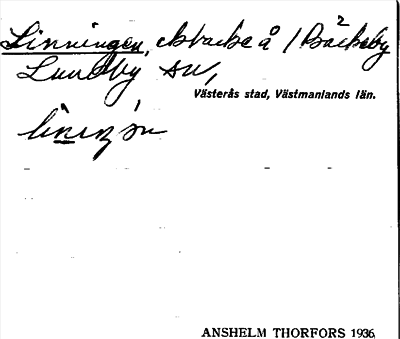 Linningen, backe å 1 Bäckeby
Lundby sn,
Västerås stad, Västmanlands län.
ANSHELM THORFORS 1936